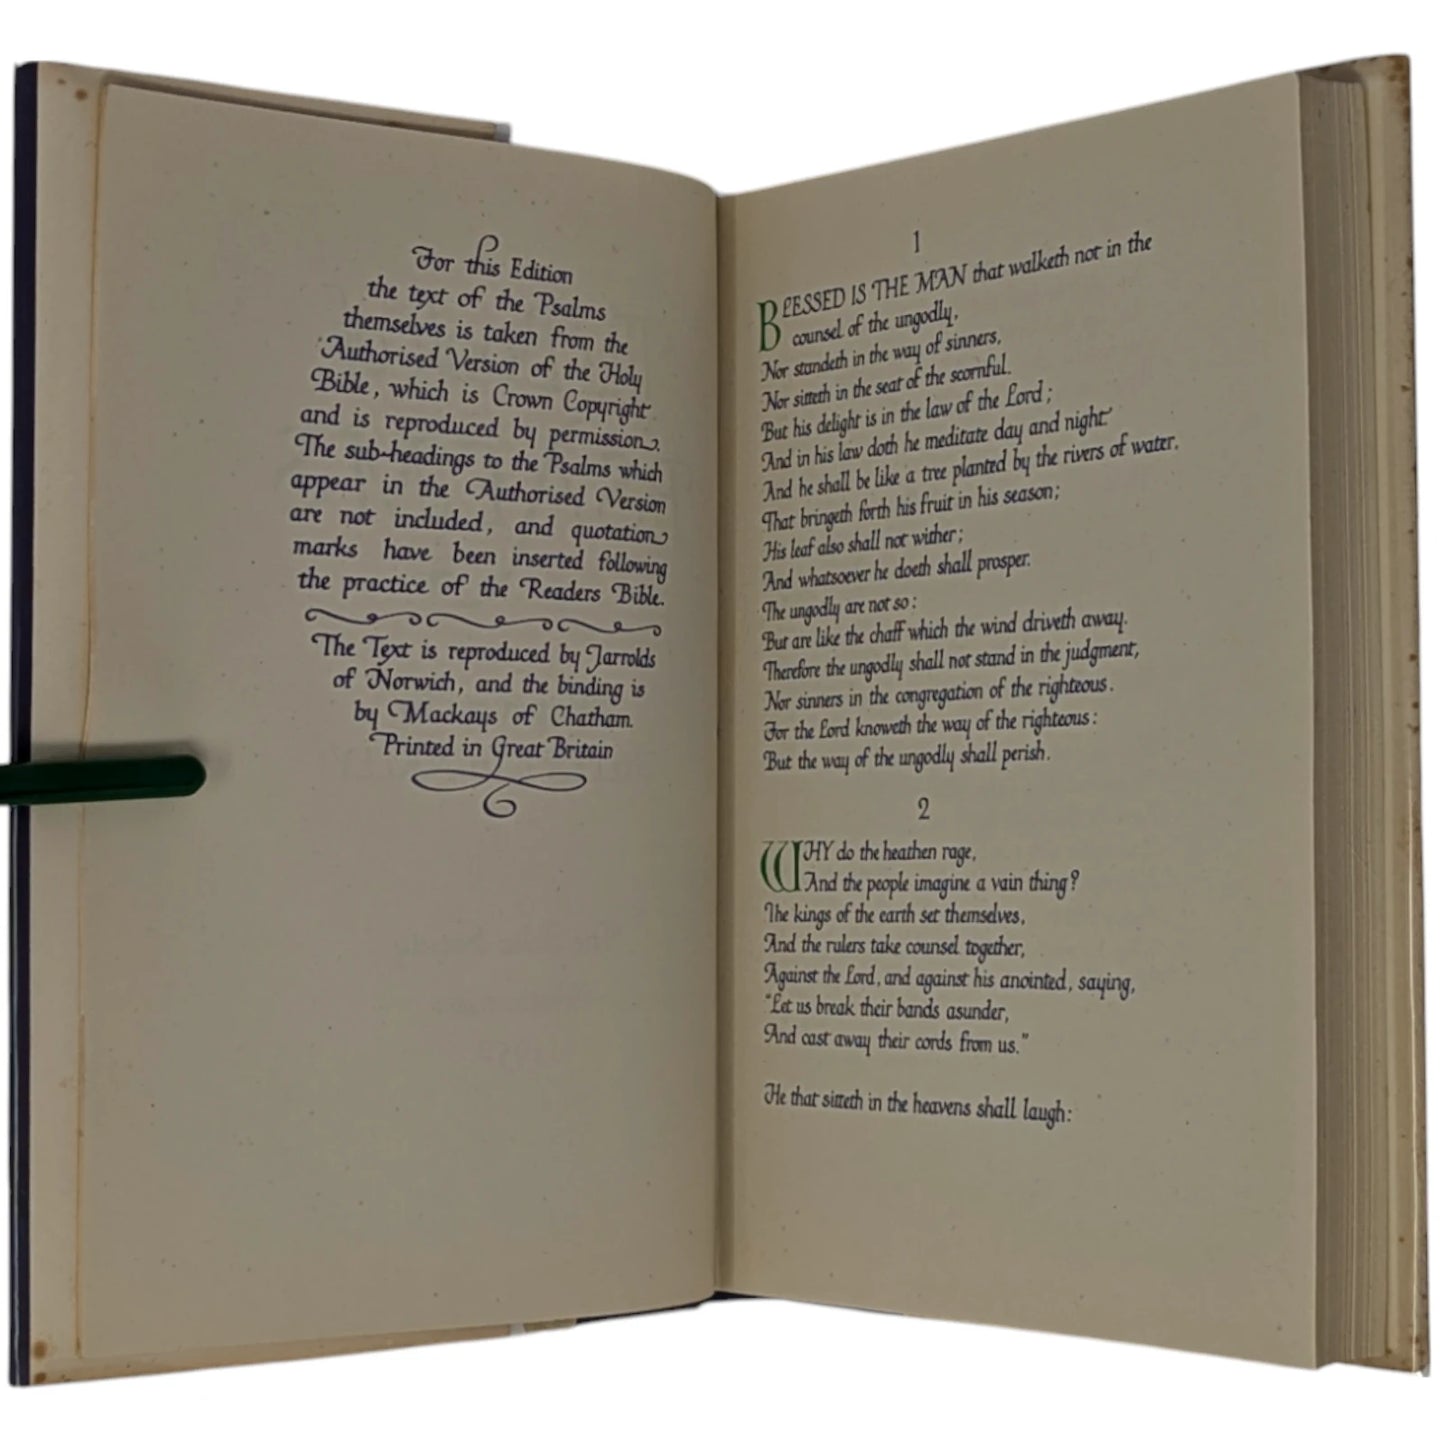 For this Edition
the text of the Psalms
themselves is taken from the
Authorised Version of the Holy
Bible, which is Crown Copyright
and is reproduced by permission.
The sub-headings to the Psalms which
appear in the Authorised Version
are not included, and quotation
marks have been inserted following
the practice of the Readers Bible.
The Text is reproduced by Jarrolds
of Norwich, and the binding is
by Mackays of Chatham.
Printed in Great Britain
1
BLESSED IS THE MAN that walketh not in the
counsel of the ungodly,
Nor standeth in the way of sinners,
Nor sitteth in the seat of the scornful.
But his delight is in the law of the Lord;
And in his law doth he meditate day and night.
And he shall be like a tree planted by the rivers of water,
That bringeth forth his fruit in his season;
His leaf also shall not wither;
And whatsoever he doeth shall prosper.
The ungodly are not so:
But are like the chaff which the wind driveth away.
Therefore the ungodly shall not stand in the judgment,
Nor sinners in the congregation of the righteous.
For the Lord knoweth the way of the righteous:
But the way of the ungodly shall perish.
2
WHY do the heathen rage,
And the people imagine a vain thing?
The kings of the earth set themselves,
And the rulers take counsel together,
Against the Lord, and against his anointed, saying,
"Let us break their bands asunder,
And cast away their cords from us."
He that sitteth in the heavens shall laugh: